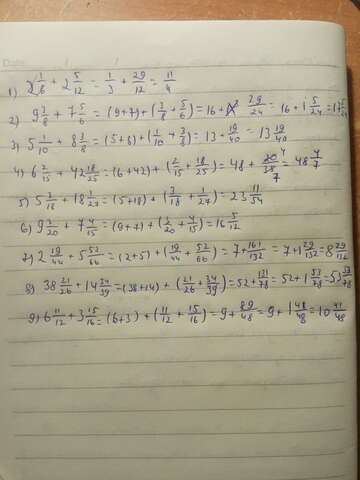 1) 2 1/6 + 2 5/12 = 1/3 + 29/12 = 11/4
2) 9 3/8 + 7 5/6 = (9+7)+(3/8+5/6)=16+ 29/24 = 16+1 5/24 = 17 5/24
3) 5 1/10 + 8 3/8 = (5+8)+(1/10+3/8)=13+ 19/40 = 13 19/40
4) 6 2/15 + 42 18/25 = (6+42)+(2/15+18/25)=48+ = 48 4/7
5) 5 3/18 + 18 1/27 = (5+18)+(3/18+1/27)=23 11/54
6) 9 2/20 + 7 4/15 = (9+7)+(2/20+4/15)=16 5/12
7) 2 19/44 + 5 52/66 = (2+5)+(19/44+52/66)=7+ 161/132 = 7+1 29/132 = 8 29/132
8) 38 21/26 + 14 34/39 = (38+14)+(21/26+34/39)=52+ 131/78 = 52+1 53/78 = 53 53/78
9) 6 11/12 + 3 15/16 = (6+3)+(11/12+15/16)=9+ 89/48 = 9+1 48/48 = 10 41/48